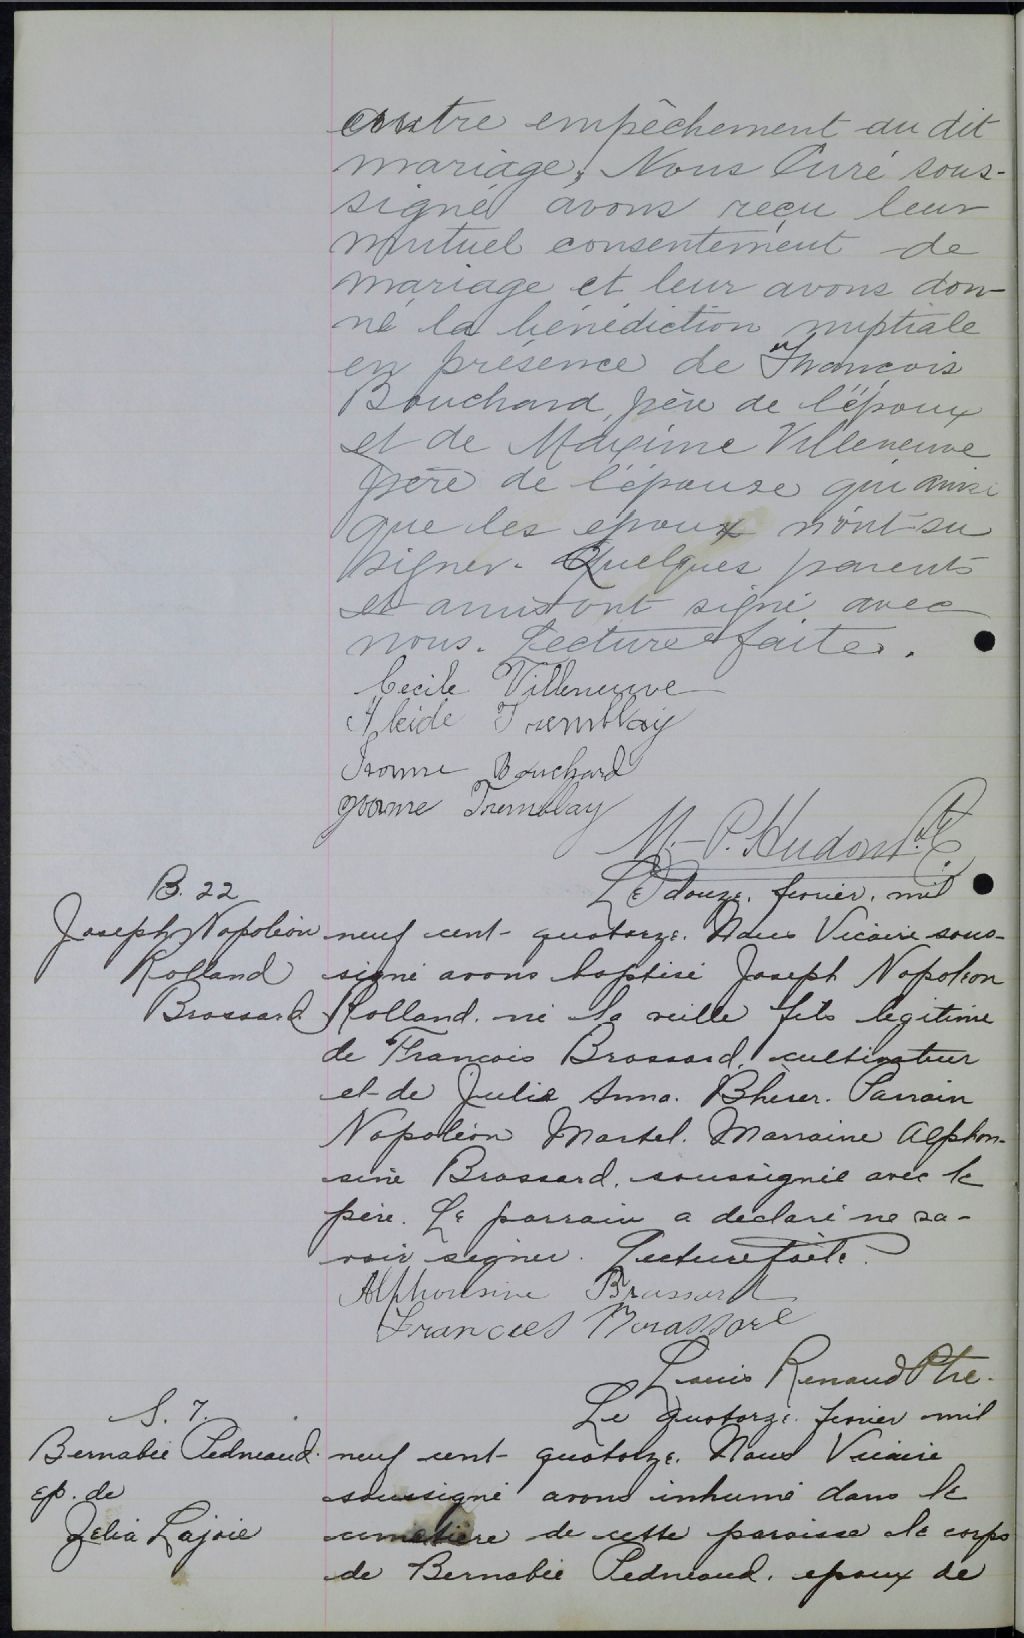 autre empêchement au dit
mariage, Nous Curé sous-
signé avons reçu leur
mutuel consentement de
mariage et leur avons don-
né la bénédiction nuptiale
en présence de François
Bouchard, père de l'époux
et de Maxime Villeneuve
père de l'épouse qui ainsi
que les epoux n'ont su
signer. Quelques parents
et amis ont signé avec
nous. Lecture faite.
Cecile Villeneuve
Alcide Tremblay
Bouchard
Tremblay
M.-P. Hudon Ptr
B. 22
Joseph Napoléon
Rolland
Brassard
Le douze fevrier mil
neuf cent quatorze. Nous Vicaire sous-
signé avons baptisé Joseph Napoleon
Rolland né la veille fils legitime
de Francois Brassard, cultivateur
et de Julie Anna Bherer. Parrain
Napoléon Martel. Marraine Alphon-
sine Brassard, soussignée avec le
père. Le parrain a declaré ne sa-
voir signer. Lecture faite.
Alphonsine Brassard
Francois Brassard
Louis Renaud Ptre.
S. 7.
Bernabée Pedneaud
ep. de
Zelia Lajoie
Le quatorze fevrier mil
neuf cent quatorze. Nous Vicaire
soussigné avons inhumé dans le
cimetière de cette paroisse le corps
de Bernabée Pedneaud, epoux de